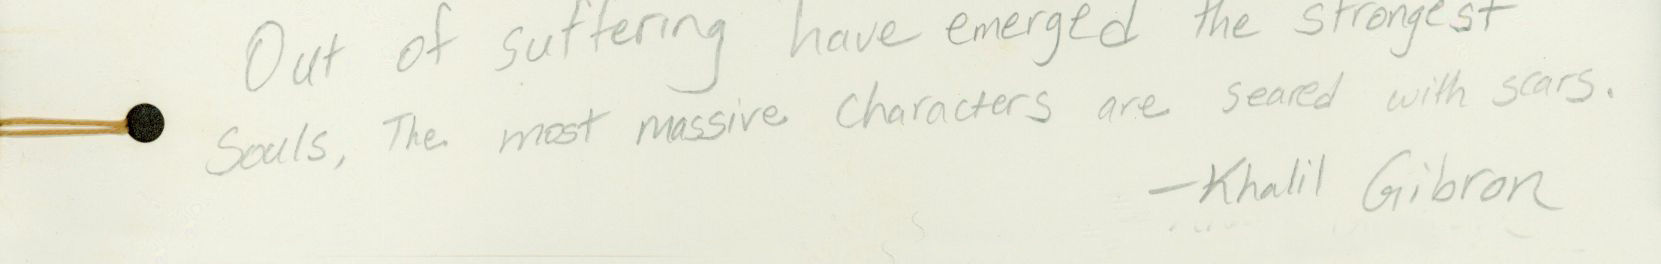 Out of suffering have emerged the strongest
Souls, The most massive characters are seared with scars.
—Khalil Gibron